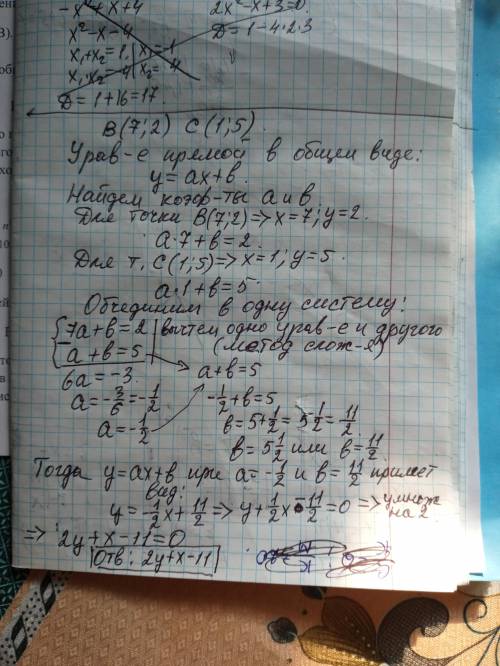 -x² + x + 4
2x² - x + 3 = 0.
x² - x - 4
D = 1 - 4·2·3
x₁+x₂ = 1, | x₁ = 1
x₁·x₂ = 4 | x₂ = 4
D = 1 + 16 = 17.
B(7;2) C(1;5).
Урав-е прямой в общем виде:
y = ax + в.
Найдем коэф-ты а и в
Для точки B(7;2) => x=7; y=2.
a·7 + в = 2.
Для т. C(1;5) => x=1; y=5.
a·1 + в = 5.
Объединим в одну систему:
{7a + в = 2 | вычтем одно урав-е и другого
a + в = 5 (метод слож-я)
6a = -3. a + в = 5
a = -3/6 = -1/2 -1/2 + в = 5
a = -1/2 в = 5 + 1/2 = 5 1/2 = 11/2
в = 5 1/2 или в = 11/2
Тогда y = ax + в при a = -1/2 и в = 11/2 примет
вид:
y = -1/2x + 11/2 => y + 1/2x - 11/2 = 0 => умнож
на 2.
=> 2y + x - 11 = 0
Отв: 2y + x - 11